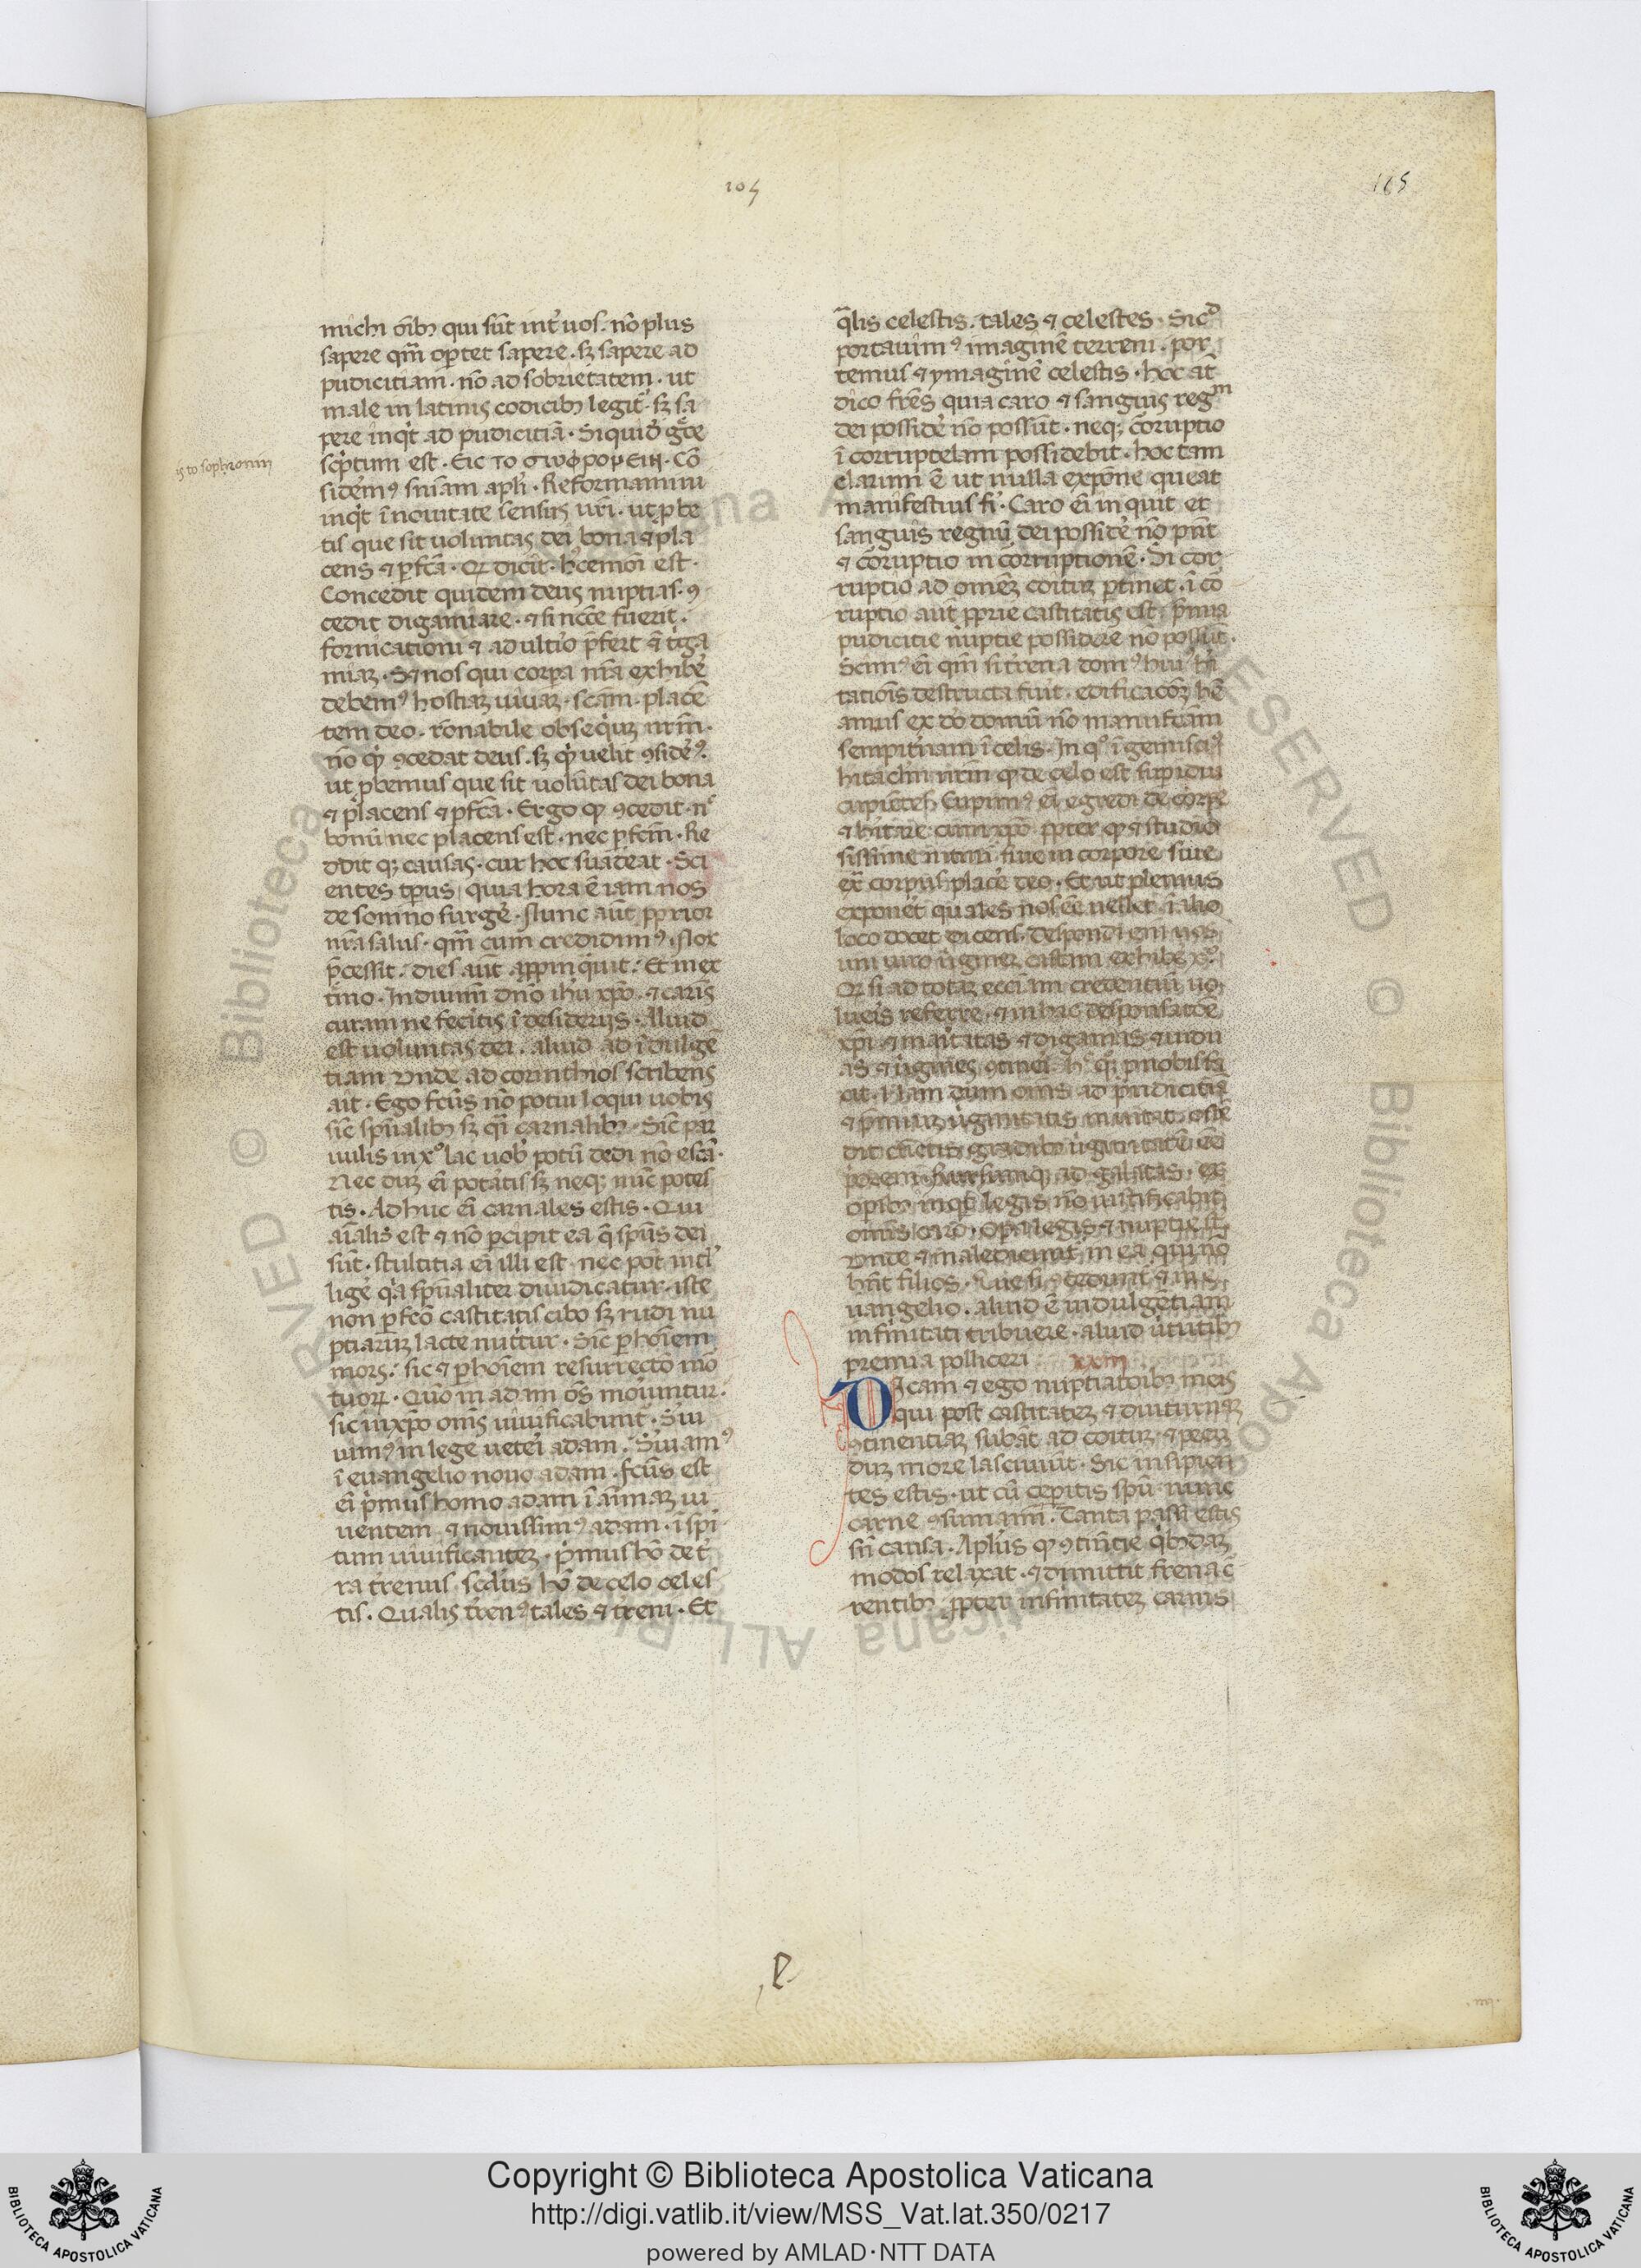 105
165
michi oı̄bȝ qui sūt int̓ uos. nō plus
sapere qm̄ oꝑtet sapere. sȝ sapere ad
pudicitiam. nō ad sobrietatem. ut
male in latinis codicibȝ legit᷑. sȝ sa
pere inqt̓ ad pudicitiā. Siquid̓ gͨce
sc̓ptum est. ΕΙϹ ΤΟ σωφρονειν. Cō
is to sophronin
sidem̓ꝰ sn̄iam apl̓i. Reformamini
inqt̓ ī nouitate sensus ur̄i. ut ꝓbe
tis que sit uoluntas dei bona ⁊ pla
cens ⁊ ꝑfc̄a. Qꝺ dicit. hͨcemoı̄ est.
Concedit quidem deus nuptias. ꝯ
cedit digamiare. ⁊ si nc̄ce fuerit.
fornicationi ⁊ adultio̓ p̄fert ⁊̄ t̓iga
miaȝ. Sȝ nos qui corꝑa nr̄a exhibe̓
debemꝰ hostiaȝ uiuaȝ. sc̄am. placē
tem deo. rōnabile obseqͥuȝ nr̄m.
nō qͥꝺ ꝯcedat deus. sȝ qͥꝺ uelit ꝯsidem̓ꝰ.
ut ꝓbemus que sit uolūtas dei bona
⁊ placens ⁊ ꝑfc̄a. Ergo qꝺ ꝯcedit. nͨ
bonū nec placens est. nec ꝑfcm̄. Re
ddit qȝ causas. cur hoc suadeat. Sci
entes tp̄us quia hora ē iam nos
de somno surge̓. Nunc aūt ꝓprior
nr̄a salus. qm̄ cum credidimꝰ. Nox
p̄cessit. dies aūt appinqͣuit. Et in ex
tīmo. Induimi dn̄o ih̄u xp̄o. ⁊ carnis
curam ne fecitis ī desiderijs. Aliud
est uoluntas dei. aliud ad īdulge
tiam Unde ad corinthios scribens
ait. Ego fr̄es nō potui loqui uobis
sic̄ spūalibȝ sȝ qͣi carnalibȝ. Sic̄ par
uulis in xͦ lac uob̓ potū dedi nō escā.
Nec duȝ eı̄ potātis sȝ neqȝ nūc potes
tis. Adhuc eı̄ carnales estis. Qui
aı̄alis est ⁊ nō ꝑcipit ea q̄ spūs dei
sūt. stultitia eı̄ illi est. nec pōt intl̓
lige̓ qͥa spūaliter diiudicatur. iste
non ꝑfc̄o castitatis cibo sȝ rudi nu
ptiaruȝ lacte nut̓tur. Sic ꝑ hoı̄em
mors: sic ⁊ ꝑ hoı̄em resurrectō mo̓
tuoꝝ. Quō in adam oē̄s mouiuntur.
sic in xp̄o oms̄ uiuificabunt᷑. S̓ui
uimꝰ in lege uet̓i adam. S̓uiamꝰ
ī euangelio nouo adam. fc̄us est
eı̄ pͥmus homo adam ī aı̄maȝ ui
uentem. ⁊ nouissimꝰ adam. ī spi
tum uiuificanteȝ. pͥmus hō de t̓
ra t̓renus. scd̓us hō de celo celes
tis. Qualis t̓renꝰ tales ⁊ t̓reni. Et
q̄lis celestis. tales ⁊ celestes. Sicͩ
portauimꝰ imaginē terreni. por
temus ⁊ ymaginē celestis. hoc at̄
dico fr̄es quia caro ⁊ sanguis regͫ
dei posside̓ nō possūt. neqȝ c̄oruptio
ī corruptelam possidebit. hoc tam
clarum ē ut nulla expōne queat
manifestius fi̓. Caro eı̄ inquit et
sanguis regnū dei posside̓ nō pn̄t
⁊ c̄oruptio incorruptionē. Si cor
ruptio ad omēȝ coituȝ ꝑtinet. ī co
ruptio aūt ꝓprie castitatis est. pͥmia
pudicitie nuptie possidere nō possūt.
Scimꝰ eı̄ qm̄ si t̓rena domꝰ huiꝰ hi̓
tatiois̄ destructa fuit̓. edificacōȝ he̓
amus ex dō domū nō manufc̄am
sempit̓nam ī celis. In qͦ ī gemiscimꝰ
hitaclm̄ nr̄m qꝺ de celo est suꝑindui
cupiētes. Cupimꝰ eı̄ egredi de corꝑe
⁊ hitare cum xp̄o. ꝓpter qꝺ ⁊ studio
sissime nitim̓ siue in corpore siue
ext̓ corpus place̓ deo. Et ut plenius
exponēt quales nos eē uellet ī alio
loco docet dicens. Despondi eni̓ uos
uni uiro ūgineȝ castam exhibe̓ xͦ.
Qꝺ si ad totaȝ eccl̓iam credentiū uo
lueis̓ referre. ⁊ in hac desponsatōe
xp̄i ⁊ maritatas ⁊ digamas ⁊ uidu
as ⁊ ūgines ꝯtine̓i. hͨ qͦȝ ꝓ nobis fa
cit. Nam dum oms̄ ad pudicitiā
⁊ pͥmiuȝ ūginitatis inuitat. oste̓
dit cūctis gradibȝ ūginitatē eē
potiorem. Rursumqȝ ad galatas. ex
opibȝ inqt̓ legis nō iustificabit᷑
omis̄ caro. Oꝑa legis ⁊ nuptie st̄
Unde ⁊ maledicunt᷑ in ea qui nō
hn̄t filios. Que si ꝯcedunt᷑ ⁊ in e
uangelio. aliud ē indulgētiam
infirmitati tribuere. aliud ūtutibȝ
premia polliceri xxiii
Dicam ⁊ ego nuptiatoibȝ meis
qui post castitateȝ ⁊ diuturnaȝ
ꝯtinentiaȝ subāt ad coituȝ. ⁊ pecu
duȝ more lasciuiūt. Sic insipien
tes estis. ut cū ceꝑitis spū. nunc
carne ꝯsumamī. Tanta passi estis
sn̄ causa. Aplu̓s qꝺ ꝯtinētie qͥbꝺaȝ
modos relaxat. ⁊ dimittit frena c̄
rentibȝ ꝓpter infirmitateȝ carnis
Copyright © Biblioteca Apostolica Vaticana
http://digi.vatlib.it/view/MSS_Vat.lat.350/0217
powered by AMLAD·NTT DATA